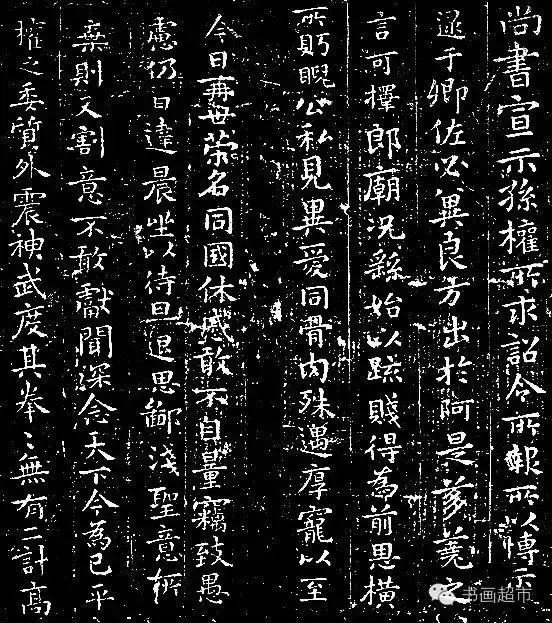 尚書宣示孫權所求詔令所報所以博示
逮于卿佐必冀良方出於阿是芻蕘之
言可擇郎廟況繇始以疏賤得為前恩橫
所眄睨公私見異愛同骨肉殊遇厚寵以至
今日再世榮名同國休慼敢不自量竊致愚
慮仍日達晨坐以待旦退思鄙淺聖意所
棄則又割意不敢獻聞深念天下今為已平
權之委質外震神武度其拳〻無有二計高
书画超市